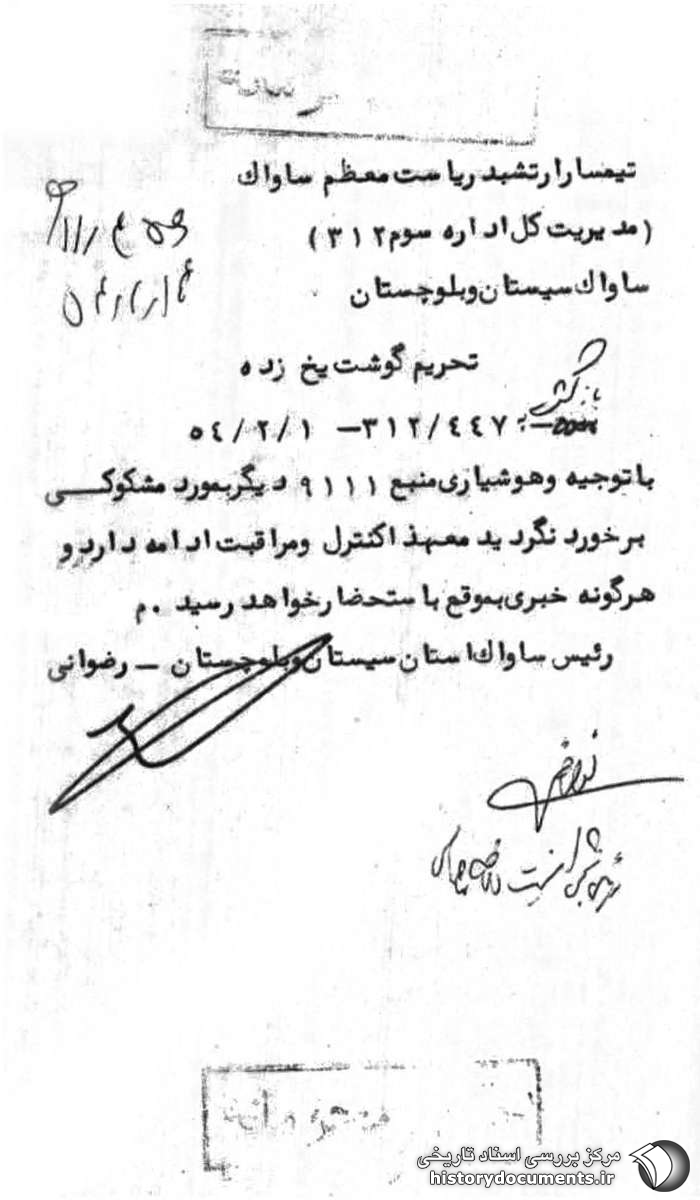 محرمانه
تیمسار ارتشبد ریاست معظم ساواک
(مدیریت کل اداره سوم ۳۱۲)
ساواک سیستان و بلوچستان
تحریم گوشت یخ زده
بازگشت
۳۱۲/۴۴۷ – ۵۴/۲/۱
با توجیه و هوشیاری منبع ۹۱۱۱ دیگر بمورد مشکوکی
برخورد نگردید معهذا کنترل و مراقبت ادامه دارد و
هرگونه خبری بموقع باستحضار خواهد رسید . م
رئیس ساواک استان سیستان و بلوچستان – رضوانی
محرمانه
مرکز بررسی اسناد تاریخی
historydocuments.ir